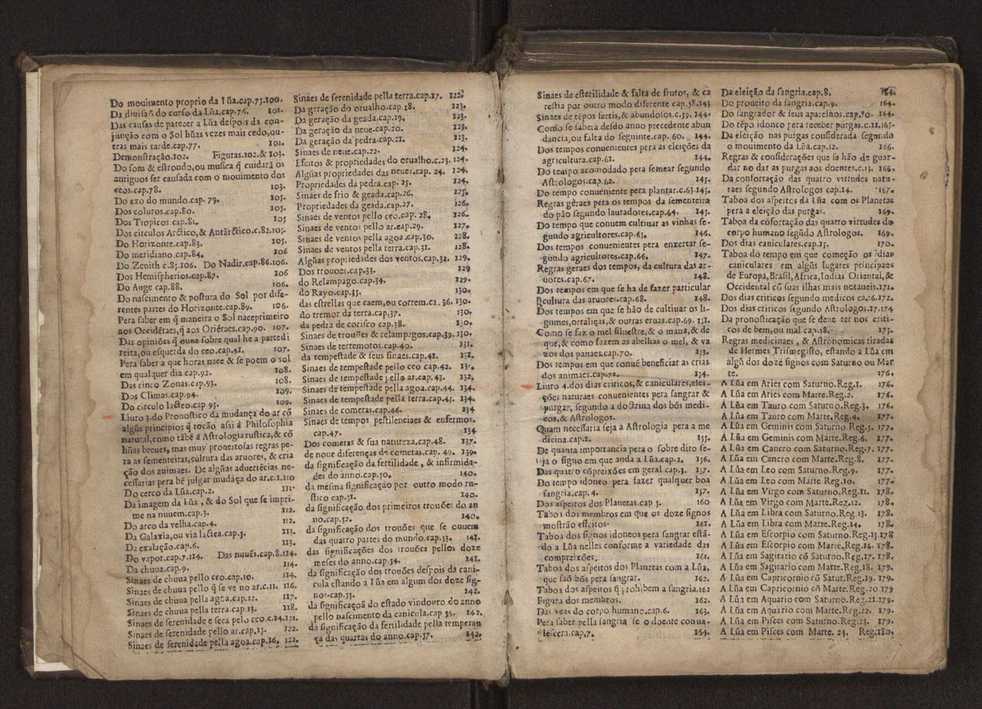 Do mouimento proprio da Lũa.cap.75.100.
Da diuisaõ do curso da Lũa.cap.76. 101.
Das causas de parecer a Lũa despois da con-
junção com o Sol hũas vezes mais cedo, ou-
tras mais tarde.cap.77. 101.
Demonstração.102. Figuras.102.& 103.
Do som & estrondo, ou musica q̃ cuidarã os
antiguos ser causada com o mouimento dos
ceos.cap.78. 103.
Do exo do mundo.cap. 79. 105.
Dos coluros.cap.80. 105.
Dos Tropicos cap.81. 105
Dos circulos Arctico, & Antarctico.c.82.105.
Do Horizonte.cap.83. 105.
Do meridiano.cap.84. 106
Do Zenith c.85.106. Do Nadir.cap.86.106.
Dos Hemispherios.cap.87. 106
Do Auge cap.88. 106.
Do nascimento & postura do Sol por dife-
rentes partes do Horizonte.cap.89. 106.
Pera saber em q̃ maneira o Sol nace primeiro
nos Occidẽtaes, q̃ aos Oriẽtaes.cap.90. 107.
Das opiniões q̃ ouue sobre qual he a parte di
reita, ou esquerda do ceo.cap.91. 107.
Pera saber a que horas nace & se poem o sol
em qualquer dia cap.92. 108.
Das cinco Zonas.cap.93. 108.
Dos Climas.cap.94. 109.
Do circulo lacteo.cap.95. 109.
Liuro 3.do Pronostico da mudança do ar cõ
algũs principios q̃ tocão assi â Philosophia
natural, como tãbẽ â Astrologia rustica, & cõ
hũas breues, mas muy proueitosas regras pe-
ra as sementeiras, cultura das aruores, & cria
ção dos animaes. De algũas aduertẽcias ne-
cessarias pera bẽ julgar mudãça do ar.c.1.110
Do cerco da Lũa.cap.2. 111
Da imagem da Lũa, & do Sol que se impri-
me na nuuem.cap.3. 112.
Do arco da velha.cap.4. 112.
Da Galaxia, ou via lactea.cap.5. 113.
Da exalação.cap.6. 113.
Do vapor.cap.7.114. Das nuuẽs.cap.8.114.
Da chuua.cap.9. 114.
Sinaes de chuua pello ceo.cap.10. 114.
Sinaes de chuua pello q̃ se ve no ar.c.11. 116.
Sinaes de chuua pella agoa.cap.12. 117.
Sinaes de chuua pella terra cap.13. 118.
Sinaes de serenidade & seca pelo ceo.c.14.121.
Sinaes de serenidade pello ar.cap.15. 122.
Sinaes de serenidade pella agoa.cap.16. 122.
Sinaes de serenidade pella terra.cap.17. 122.
Da geração do orualho.cap.18. 123.
Da geração da geada.cap.19. 123.
Da geração da neue.cap.20. 123.
Da geração da pedra.cap.21. 123.
Sinaes de neue.cap.22. 124.
Efeitos & propriedades do orualho.c.23. 124.
Algũas propriedades das neues.cap. 24. 124.
Propriedades da pedra.cap. 25. 124.
Sinaes de frio & geada.cap.26. 125.
Propriedades da geada.cap.27. 126.
Sinaes de ventos pello ceo.cap. 28. 126.
Sinaes de ventos pello ar.cap.29. 127.
Sinaes de ventos pella agoa.cap.30. 128.
Sinaes de ventos pella terra.cap.31. 128.
Algũas propriedades dos ventos.cap.32. 129.
Dos trouoẽs.cap.33. 129
do Relampago.cap.34. 129.
do Rayo.cap.35. 129.
das estrellas que caem, ou correm.ca. 36. 130.
do tremor da terra.cap.37. 130.
da pedra de corisco cap.38. 130.
Sinaes de trouões & relampagos.cap.39. 130.
Sinaes de terremotos.cap.40. 131.
da tempestade & seus sinaes.cap.41. 132.
Sinaes de tempestade pello ceo cap.42. 132.
Sinaes de tempestade pello ar.cap.43. 132.
Sinaes de tempestade pella agoa.cap.44. 134.
Sinaes de tempestade pella terra.cap.45. 134.
Sinaes de cometas.cap.46. 134
Sinaes de tempos pestilenciaes & enfermos.
cap.47. 134
Dos cometas & sua natureza.cap.48. 137.
de noue diferenças de cometas.cap. 49. 139.
da significação da fertilidade, & infirmida-
des do anno.cap.50. 140.
da mesma significação por outro modo ru-
stico cap.51. 140.
da significação dos primeiros trouões do an
no.cap.52. 140.
da significação dos trouões que se ouuem
das quatro partes do mundo.cap.53. 141.
das significações dos trouões pellos doze
meses do anno.cap.54. 141.
da significação dos trouões despois da cani-
cula estando a Lũa em algum dos doze sig-
nos.cap.55. 142.
da significação do estado vindouro do anno
pello nascimento da canicula.cap.55. 142.
da significação da fertilidade pella temperan
ça das quartas do anno.cap.57. 142.
Sinaes de esterilidade & falta de frutos, & ca
restia por outro modo diferente cap.58.143
Sinaes de tẽpos fartis, & abundosos.c.59. 144.
Como se sabera desdo anno precedente abun
dancia, ou falta do seguinte.cap. 60. 144.
Dos tempos conuenientes pera as eleições da
agricultura.cap.61. 144.
Do tempo acomodado pera semear segundo
Astrologos.cap.62. 145.
Do tempo conueniente pera plantar.c.63.145.
Regras gèraes pera os tempos da sementeira
do pão segundo lauradores.cap.64. 145.
Do tempo que conuem cultiuar as vinhas se-
gundo agricultores.cap.65. 146.
Dos tempos conuenientes pera enxertar se-
gundo agricultores.cap.66. 147.
Regras geraes dos tempos, da cultura das ar-
uores.cap.67. 148.
Dos tempos em que se ha de fazer particular
cultura das aruores.cap.68. 148.
Dos tempos em que se hão de cultiuar os li-
gumes, ortaliças, & outras eruas.cap.69. 151.
Como se faz o mel siluestre, & o mana, & de
que, & como fazem as abelhas o mel, & va
zos dos panaes.cap.70. 153.
Dos tempos em que conuẽ beneficiar as crias
dos animaes.cap.71. 154.
Liuro 4.dos dias criticos, & caniculares, elei-
ções naturaes conuenientes pera sangrar &
purgar, segundo a doctrina dos bõs medi-
cos, & Astrologos.
Quam necessaria seja a Astrologia pera a me
dicina.cap.1. 155.
De quanta importancia pera o sobre dito se-
ja o signo em que anda a Lũa.cap.2. 156.
Das quatro cõpreixões em geral cap.3. 157.
Do tempo idoneo pera fazer qualquer boa
sangria.cap. 4. 157.
Dos aspeitos dos Planetas.cap 5. 160
Taboa dos membros em que os doze signos
mostrão effeitos. 161.
Taboa dos signos idoneos pera sangrar estã-
do a Lũa nelles conforme a variedade das
compreixões. 161.
Taboa dos aspeitos dos Planetas com a Lũa,
que saõ bõs pera sangrar. 162.
Taboa dos aspeitos q̃ prohibem a sangria.162
Figura dos membros. 162.
Das veas do corpo humano.cap.6. 163.
Pera saber pella sangria se o doente conua-
lescera.cap.7. 164.
Da eleição da sangria.cap.8. 164.
Do proueito da sangria.cap.9. 164.
Do sangrador & seus aparelhos.cap.10. 164.
Do tẽpo idoneo pera receber purgas.c.11.165.
Da eleição nas purgas considerada segundo
o mouimento da Lũa.cap.12. 166.
Regras & considerações que se hão de guar-
dar no dar as purgas aos doentes.c.13. 166.
Da confortação das quatro virtudes natu-
raes segundo Astrologos cap.14. 167.
Taboa dos aspeitos da Lũa com os Planetas
pera a eleição das purgas. 169.
Taboa da cõfortação das quatro virtudes do
corpo humano segũdo Astrologos. 169.
Dos dias caniculares.cap.15. 170.
Taboa do tempo em que começão os dias
caniculares em algũs lugares principaes
de Europa, Brasil, Africa, Indias Oriental, &
Occidental cõ suas ilhas mais notaueis.171.
Dos dias criticos segundo medicos ca.16.172.
Dos dias criticos segundo Astrologos.17.174
Da pronosticação que se deue ter nos criti-
cos de bem, ou mal cap.18. 175.
Regras medicinaes, & Astronomicas tiradas
de Hermes Trismegisto, estando a Lũa em
algũ dos dozẽ signos com Saturno ou Mar
te. 176.
A Lũa em Aries com Saturno.Reg.1. 176.
A Lũa em Aries com Marte.Reg.2. 176.
A Lũa em Tauro com Saturno.Reg.3. 176.
A Lũa em Tauro com Marte.Reg.4. 177.
A Lũa em Geminis com Saturno Reg.5. 177.
A Lũa em Geminis com Marte.Reg.6. 177.
A Lũa em Cancro com Saturno.Reg.7. 177.
A Lũa em Cancro com Marte.Reg.8. 177.
A Lũa em Leo com Saturno.Reg.9. 177.
A Lũa em Leo com Marte Reg.10. 177.
A Lũa em Virgo com Saturno.Reg.11. 178.
A Lũa em Virgo com Marte.Reg.12. 178.
A Lũa em Libra com Saturno.Reg.13. 178.
A Lũa em Libra com Marte.Reg.14. 178.
A Lũa em Escorpio com Saturno.Reg.15.178
A Lũa em Escorpio com Marte.Reg.16. 178.
A Lũa em Sagitario cõ Saturno.Reg.17. 178.
A Lũa em Sagitario com Marte.Reg.18. 179.
A Lũa em Capricornio cõ Satur.Reg.19. 179.
A Lũa em Capricornio cõ Marte.Reg.20 179
A Lũa em Aquario com Saturno.Reg.21.179.
A Lũa em Aquario com Marte.Reg.22. 179.
A Lũa em Pisces com Saturno.Reg.23. 179.
A Lũa em Pisces com Marte. 24. Reg.180.